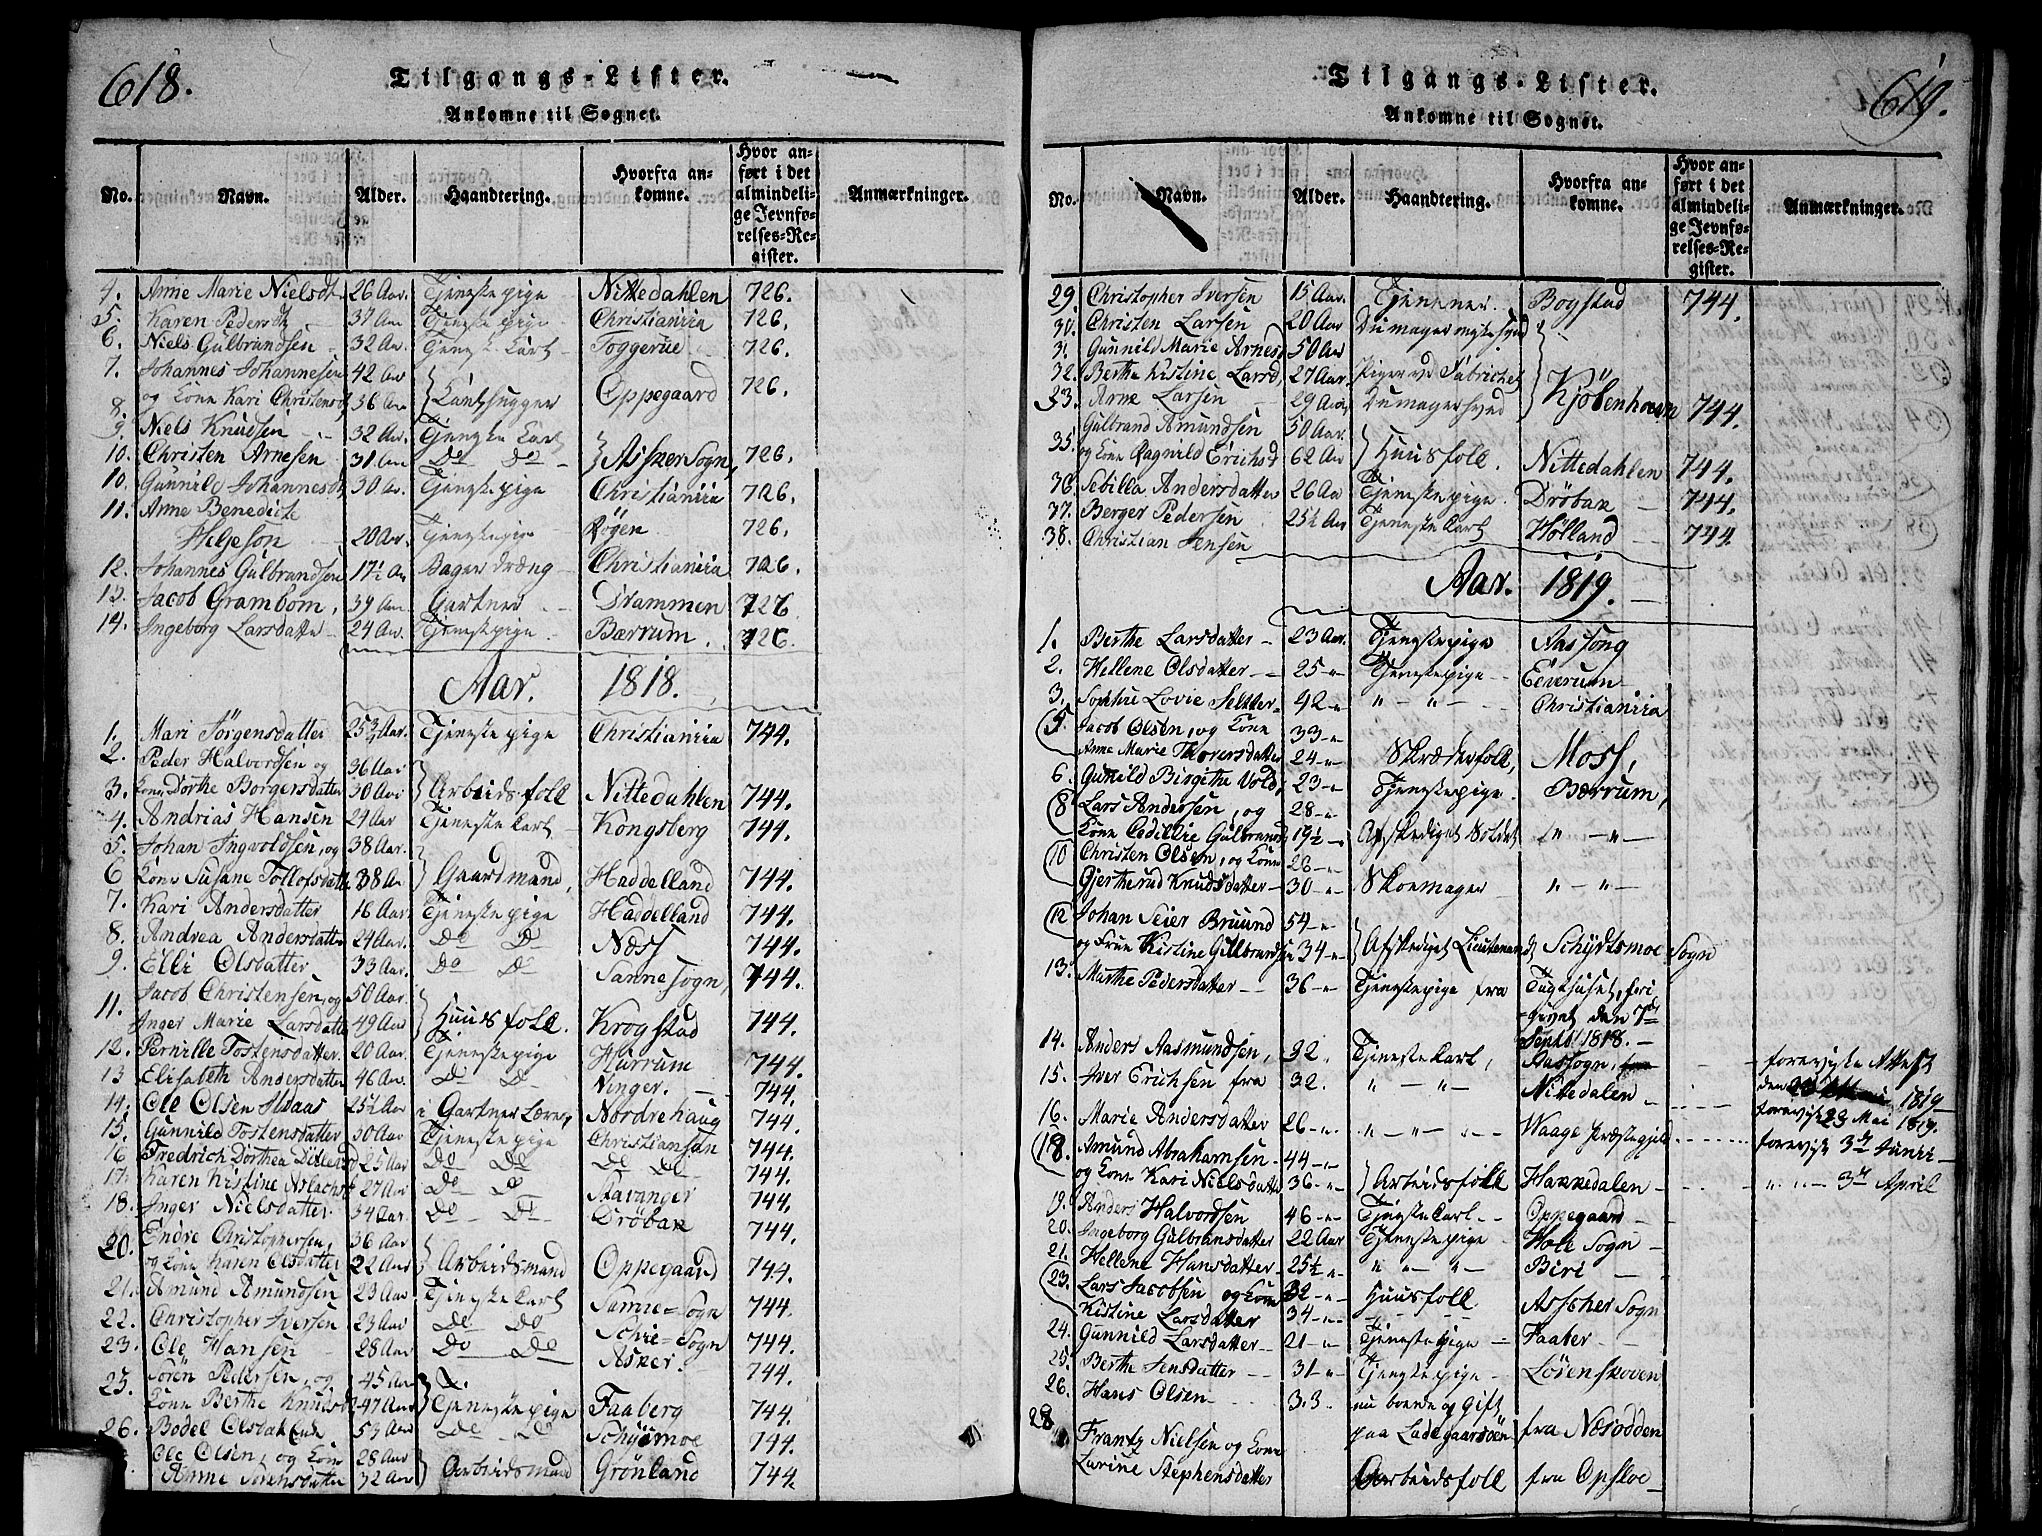 618.
Tilgangs-Lister.
Ankomne til Sognet.
No. Navn. Alder. Haandtering. Hvorfra ankomne. Hvor anført i det almindelige Jevnførelses-Register. Anmærkninger.
4. Anne Marie Nielsdt 26 Aar. Tjenestepige Nittedahlen 726.
5. Karen Pedersdt 37 Aar Tjenestepige Christiania 726.
6. Niels Gulbrandsen 32 Aar. Tjeneste Carl Toggerue 726.
7. Johannes Johannesen 42 Aar
8. og Kone Kari Christensdt 36 Aar Oppegaard 726.
9. Niels Knudsen 32 Aar. Tjeneste Carl
10. Christen Arnesen 31 Aar Do Do Asker Sogn, 726.
10. Gunnild Johannesdt 30 Aar. Tjenestepige Christiania 726.
11. Anne Benedict
Helgeson 20 Aar. Tjenestepige Røgen 726.
12. Johannes Gulbrandsen 17½ Aar Bager dræng Christiania 726.
13. Jacob Grambom, 39 Aar. Gartner Drammen 726
14. Ingeborg Larsdatter 24 Aar. Tjenestepige Bærrum. 726.
Aar. 1818.
1. Mari Jörgensdatter 25¾ Aar. Tjenestepige Christiania 744.
2. Peder Halvordsen og 36 Aar
3. Kone Dorthe Borgersdatter 30 Aar Arbeidsfolk Nittedahlen 744.
4. Andrias Hansen 24 Aar Tjeneste Carl Kongsberg 744.
5. Johan Ingvoldsen, og 38 Aar.
6 Kone Susane Tollofsdatter 38 Aar Gaardmand, Haddelland 744.
7. Kari Andersdatter 16 Aar Tjenestepige Haddelland 744.
8. Andrea Andersdatter 24 Aar. Do Do Næss 744.
9. Elli Olsdatter 33 Aar. Do Do Sanne sogn, 744.
Jacob Christensen, og 50 Aar.
11. Inger Marie Larsdatter 49 Aar Huusfolk. Krogstad 744.
12. Pernille Tostensdatter. 20 Aar. Tjenestepige Hurrum 744.
13 Elisabeth Andersdatter 46 Aar. Do Do Ninger. 744.
14. Ole Olsen Aaas 25½ Aar i Gartner Lære, Nordrehaug 744.
15. Gunnild Tostensdatter 30 Aar Tjenestepige Christiansan 744.
16 Fredrich Dorthea 25 Aar Do Do Do Do 744.
17. Karen Kistine Aslachsdt 27 Aar Do Do Stavanger 744.
18. Inger Nielsdatter 34 Aar. Do Do Dröbak 744.
Endre Christophersen, 36 Aar
20. og Kone Karen Olsdatter 22 Aar Arbeidsmand Oppegaard 744.
21. Amund Amundsen 23 Aar Tjeneste Carl Sanne=Sogn 744.
22. Christopher Iversen 23 Aar Do Do Schie=Sogn 744.
23. Ole Hansen 28 Aar Do Do Asker. 744.
Tören Pedersen, og 45 Aar
25. Kone Berthe Knudsdt 47 Aar Tjenestepige Faaberg 744.
26. Bodel Olsdatter 53 Aar Do Do Schysmoe 744.
Ole Olsen, og Kone 28 Aar
Anne Sörensdatter 32 Aar Arbeidsmand Grönland 744.
619.
Tilgangs-Lister.
Ankomne til Sognet.
No. Navn. Alder. Haandtering. Hvorfra ankomne. Hvor anført i det almindelige Jevnførelses-Register. Anmærkninger.
29. Christopher Iversen 15 Aar. Tjenener Bogstad 744.
30. Christen Larsen 20 Aar
31. Gunnild Marie Arnesd 50 Aar
32. Berthe Kistine Larsd, 27 Aar. Piger ved Fabrichet
33. Arne Larsen 29 Aar, Dumagersvend Kjöbenhavn 744.
Gulbrand Amundsen 50 Aar.
35. og Kone Ragnild Erichsd 62 Aar Huusfolk. Nittedahlen 744.
36. Sebilla Andersdatter 26 Aar Tjenestepige. Dröbak 744.
37. Berger Pedersen 25½ Aar Tjeneste Carl Hölland 744.
38. Christian Jensen
Aar. 1819.
1. Berthe Larsdatter 23 Aar. Tjenestepige Aassong
2. Hellene Olsdatter 25 Tjenestepige Elverum
3. Sophie Lovie Selter 42 " " Christiania
5. Jacob Olsen, og Kone 33
Anne Marie Thorersdatter 24 Skræderfolk, Moss,
6. Gunild Birgithe Vold, 23 Tjenestepige. Bærrum,
8 Lars Andersen, og 28
Kone Cedillie Gulbrandsd 19½ Afskediget Soldat " "
10 Christen Olsen, og Kone 26
Gjertherud Knudsdatter 30 Skoemager " "
12 Johan Seier Bruund 54
og Frue Kistine Gulbrandsd 34 Afskediget Lieutenand Schydtsmoe Sogn
13. Marthe Pedersdatter 36 Tjenestepige fra Tugthuset, fri
givet den 7de
Septbr 1818.
14. Anders Aasmundsen, 32. Tjeneste Carl, Aassogn, foreviste Attest
15. Iver Erichsen fra 32. " " Nittedalen den 1819
16. Marie Andersdatter 26 " " Waage Præstegjeld foreviste 23 Mai 1819.
18. Amund Abrahamsen 44 foreviste 3de Junii
og Kone Kari Nielsdatter 36 Arbeidsfolk Hakkedalen " " 3de April
19. Anders Halvordsen 46 Tjeneste Carl Oppegaard
20. Ingeborg Gulbransdatter 22 Aar Tjenestepige Hole Sogn
21. Hellene Hansdatter 25½ " " Biri
23. Lars Jacobsen og Kone 32 Huusfolk Asscher Sogn
Kistine Larsdatter 34
24. Gunnild Larsdatter 21 Tjenestepige Faaber
25. Berthe Jensdatter 31 Tjenestepige Lörenskoven
26. Hans Olsen 33 nu boende og Gift
28 Frantz Nielsen og Kone paa Ladegaardsöen fra Næsodden
Karine Stephensdatter Arbeidsfolk fra Opsloe